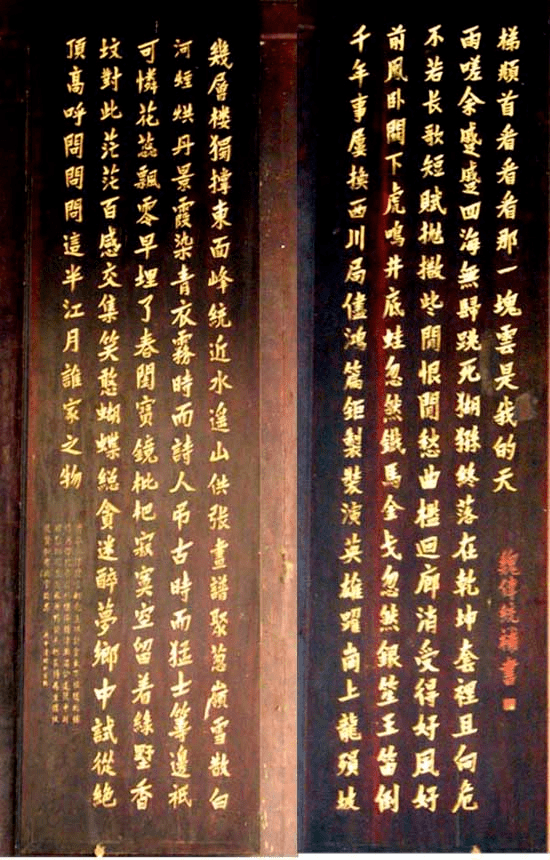 幾層楼獨撐東面峰統近水遙山供張畫譜聚葱嶺雪散白
河煙烘丹景霞染青衣霧時而詩人吊古時而猛士籌邊祇
可憐花蕊飄零早埋了春閨寶鏡枇杷寂寞空留着綠墅香
坟對此茫茫百感交集笑憨蝴蝶總貪迷醉夢鄉中試從絕
頂高呼問問問這半江月誰家之物
千年事屢換西川局儘鴻篇鉅製裝演英雄躍崗上龍殞坡
前鳳卧關下虎鳴井底蛙忽然鐵馬金戈忽然銀笙玉笛倒
不若長歌短賦拋撒些閒恨閒愁曲檻迴廊消受得好風好
雨嗟余蹙蹙四海無歸跳死猢猻終落在乾坤套裡且向危
梯頫首看看看那一塊雲是我的天
魏傳統補書